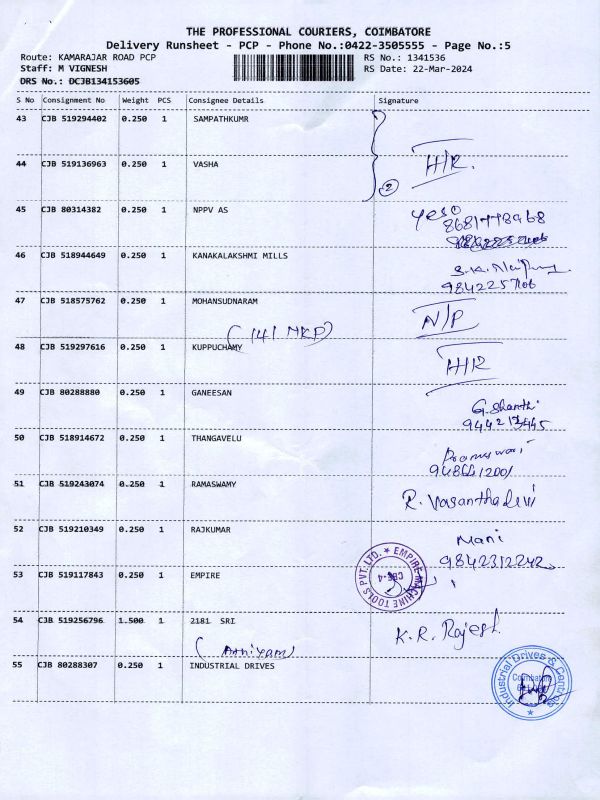 THE PROFESSIONAL COURIERS, COIMBATORE
Delivery Runsheet - PCP - Phone No.:0422-3505555 - Page No.:5
Route: KAMARAJAR ROAD PCP RS No.: 1341536
Staff: M VIGNESH RS Date: 22-Mar-2024
DRS No.: DCJB134153605
S No Consignment No Weight PCS Consignee Details Signature
43 CJB 519294402 0.250 1 SAMPATHKUMR
44 CJB 519136963 0.250 1 VASHA H/R.
2
45 CJB 80314382 0.250 1 NPPV AS yes
46 CJB 518944649 0.250 1 KANAKALAKSHMI MILLS
47 CJB 518575762 0.250 1 MOHANSUDNARAM N/P
(141 NKP)
48 CJB 519297616 0.250 1 KUPPUCHAMY H/R
49 CJB 80288880 0.250 1 GANEESAN G.Shanthi
50 CJB 518914672 0.250 1 THANGAVELU
51 CJB 519243074 0.250 1 RAMASWAMY R. Vasanthadevi
52 CJB 519210349 0.250 1 RAJKUMAR Mani
9842312242
53 CJB 519117843 0.250 1 EMPIRE EMPIRE MACHINE TOOLS PVT. LTD. CBE-4
54 CJB 519256796 1.500 1 2181 SRI K.R. Rajesh
55 CJB 80288307 0.250 1 INDUSTRIAL DRIVES Industrial Drives & Controls Coimbatore